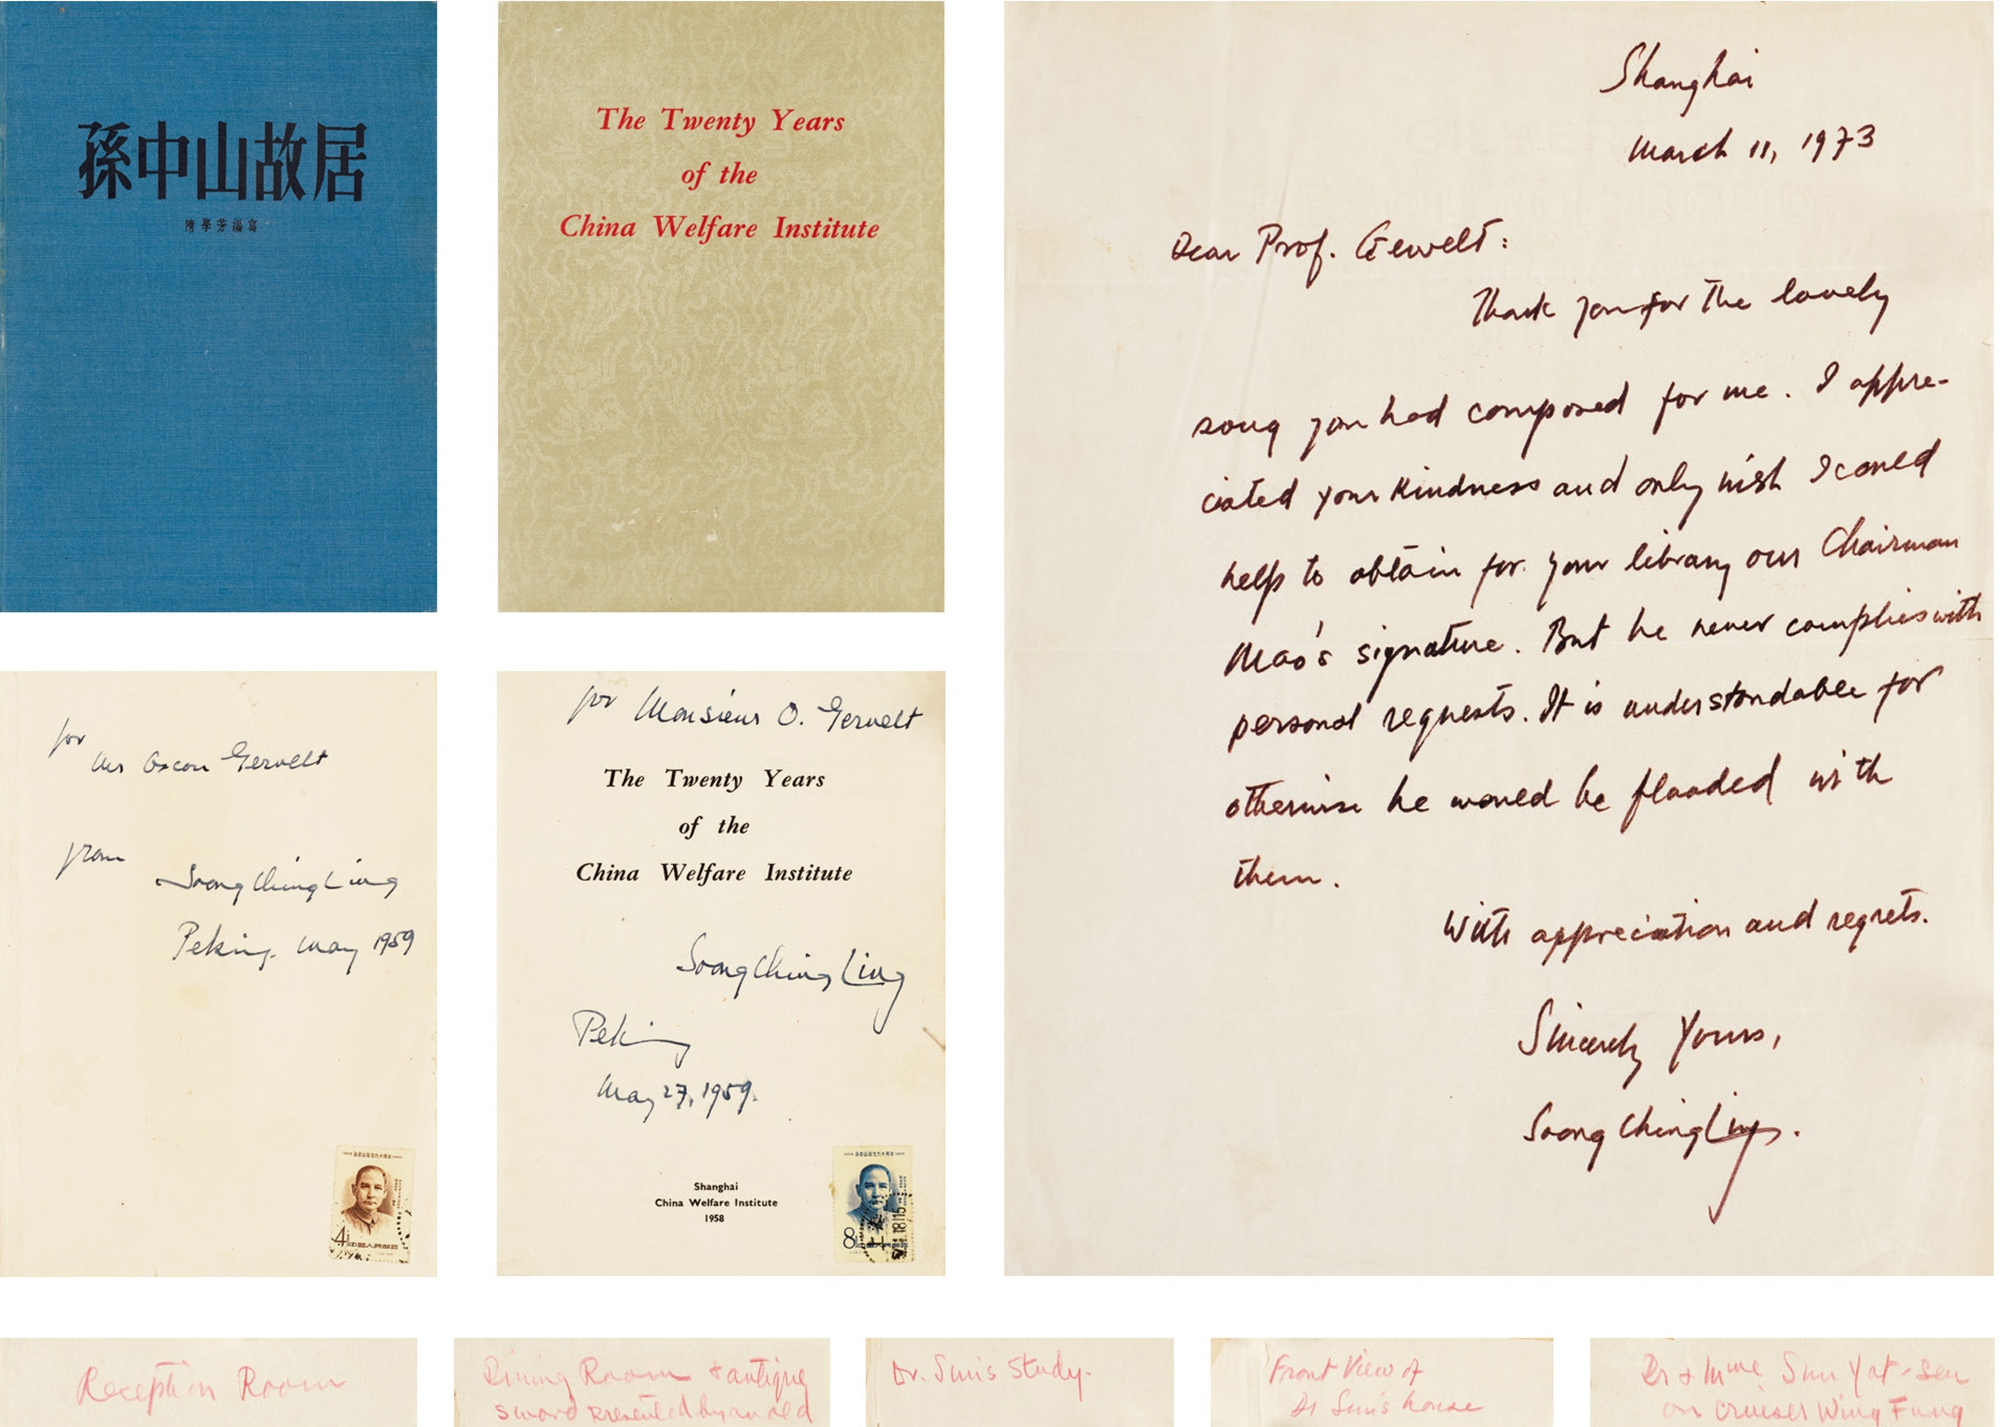 孫中山故居
隋學芳編寫
The Twenty Years
of the
China Welfare Institute
Shanghai
March 11, 1973
Dear Prof. Gewelt:
Thank you for the lovely
song you had composed for me. I appre-
ciated your kindness and only wish I could
help to obtain for your library our Chairman
Mao's signature. But he never complies with
personal requests. It is understandable for
otherwise he would be flooded with
them.
With appreciation and regrets.
Sincerely Yours,
Soong Ching Ling.
for
Mr Oscar Gervelt
from
Soong Ching Ling
Peking. May 1959
for Monsieur O. Gervelt
The Twenty Years
of the
China Welfare Institute
Soong Ching Ling
Peking
May 27, 1959.
Shanghai
China Welfare Institute
1958
4
8
Reception Room
Dining Room & antique
sword presented by an old
Dr. Sun's Study.
Front View of
Dr Sun's house
Dr & Mme Sun Yat-sen
on cruiser Wing Fung